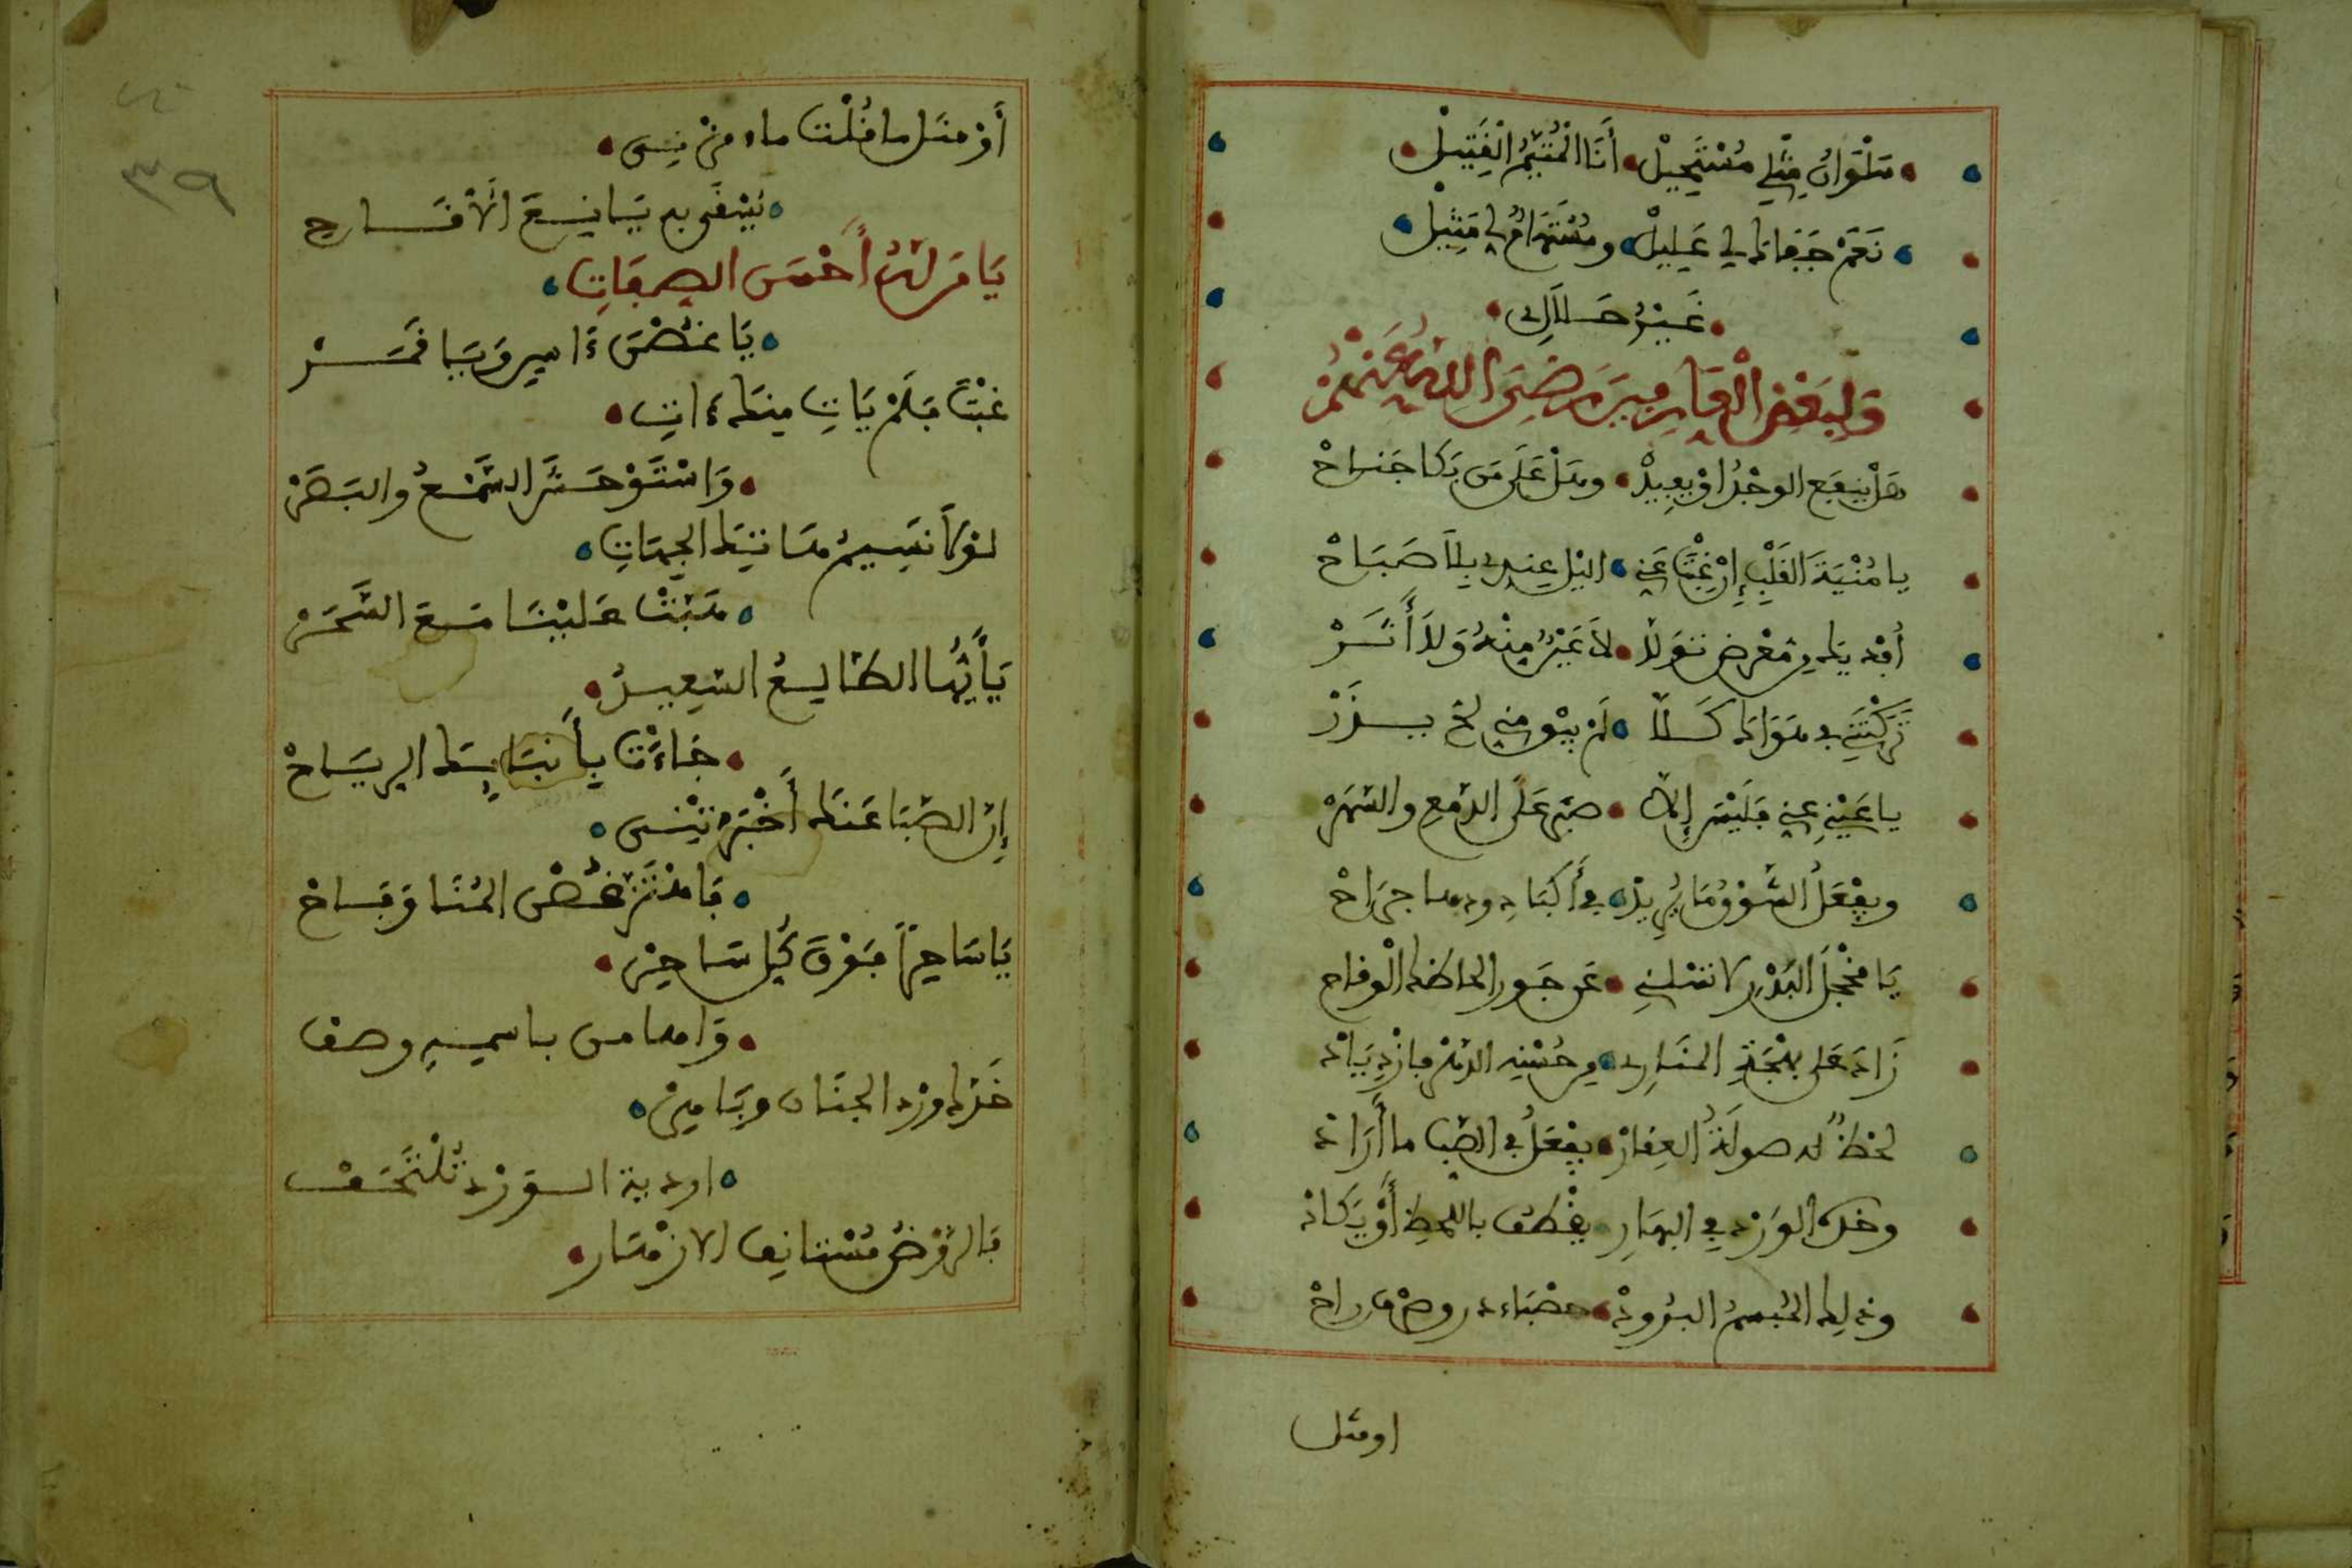 سَلْوَانُ مِثْلِي مُسْتَحِيلْ أَنَا الْمُتَيَّمُ الْقَتِيلْ
نَعَمْ جَفَاكَ لِي عَلِيلْ ومُسْتَهَامٌ لِي مَثِيلْ
غَيْرُ حَلَالِ
وَلِبَعْضِ الْعَارِفِينَ رَضِيَ اللهُ عَنْهُمْ
هَلْ يَنْفَعُ الوَجْدُ أَوْ يُفِيدْ وهَلْ عَلَى مَن بَكَا جُنَاحْ
يا مُنْيَةَ القَلْبِ إِنْ غِبْتَ عَنِّي اليل عِنْدِي بِلَا صَبَاحْ
أَفْدِيكَ مِن مُعْرِضٍ تَوَلَّا لَا عَيْنٌ مِنْهُ وَلَا أَثَرْ
تَرَكْتَنِي فِي هَوَاكَ كَلَّا لَمْ يَبْقَ مِنِّي ... يَذَرْ
يا عَيْنِي عِينِي فَلَيْسَ إِلَّا صَبْرٌ عَلَى الدَّمْعِ والسَّهَرْ
ويفْعَلُ الشَّوْقُ مَا يُرِيدْ فِي أَكْبَادٍ ... جِرَاحْ
يَا مُخْجِلَ البَدْرِ لا تَسَلْنِي عَن جَوْرِ الحاظك الْوِقاح
زَادَ عَلَى بَهْجَةِ النهار مِن حُسْنِهِ الدَّهْرَ فِازْدِيَادْ
لَحْظٌ له صولَةُ العُقَارْ يفْعَلُ فِي الصَّبِّ ما أَرَادْ
وخده الوَرْدُ فِي البهَارِ يقْطَفُ باللَّحْظِ أَوْ يَكَادْ
وذلك المَبْسِمُ البَرُودْ حَصْبَاءُ در وصِرْف راحْ
او مثل
أَوْ مثل ما قُلْتَ ماء مُزْنِ
يُسْقَى به يَانِعَ الأَقَاحِ
يَا مَن لَهُ أَحْسَنَ الصِّفَاتِ
يَا غُصْنَ ءَاسٍ وَيَا قَمَرْ
غِبْتَ فَلَمْ يَاتِ مِنكَ ءَاتِ
وَاسْتَوْحَشَ السَّمْعُ والبَصَرْ
لَوْلَا نَسِيمُ هَاتِيكَ الجِهَاتِ
هَبَّتْ عَلَيْنَا مَعَ السَّحَرْ
يَأَيُّهَا الطَّالِعُ السَّعِيدْ
جَاءَتْ بِأَنْبَائِكَ الرِّيَاحْ
إِنَّ الصَّبَا عَنكَ أَخْبَرَتْنِي
فَاهْتَزَّ غُصْنُ المُنَا وَفَاحْ
يَا سَاحِراً فَوْقَ كُلِّ سَاحِرْ
وَامَا مِن باسمه وصف
خَدَّكَ ورْد الجنَان ...
اردية الوَرْدِ تُلْتَحَفْ
فَالرَّوْضُ مُسْتَانِفُ الازْهَارِ
٣٩